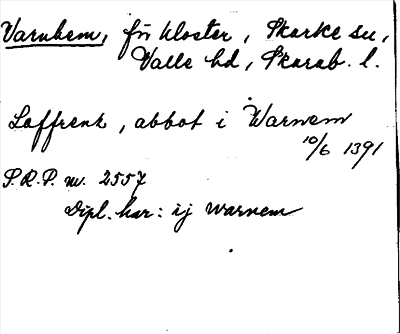 Varnhem, för kloster, Skarke sn,
Valle hd, Skarab. l.
Laffrenk, abbot i Warnem
10/6 1391
S.R.P. nr. 2557
Dipl. har: ij warnem